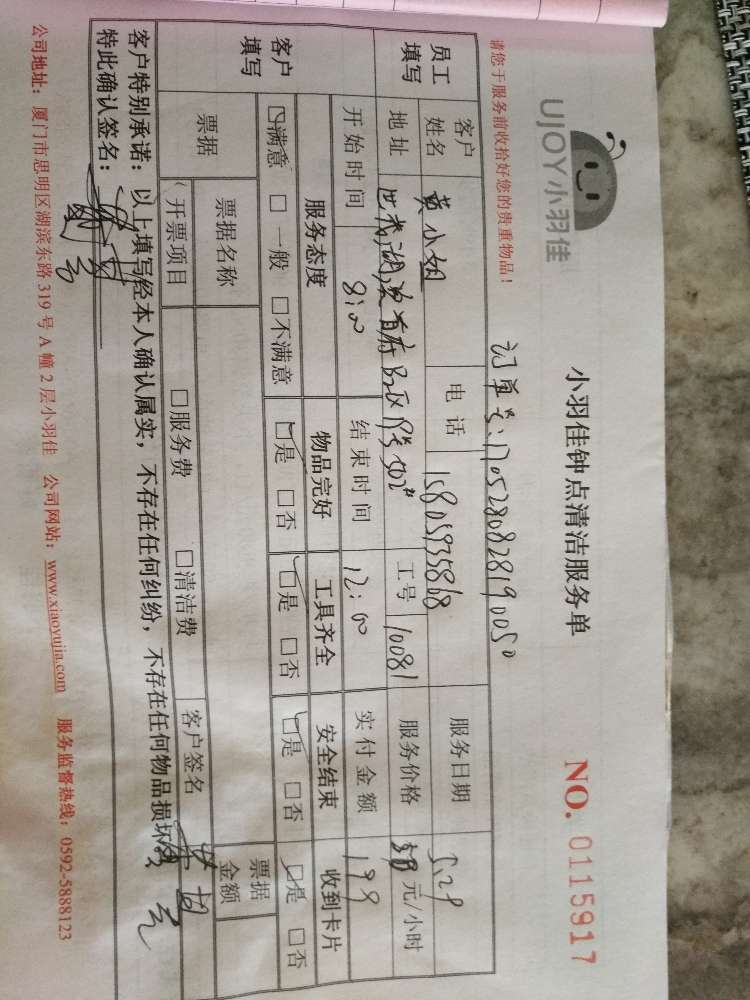 UJOY小羽佳
小羽佳钟点清洁服务单
NO. 0115917
请您于服务前收拾好您的贵重物品！
订单号：1705280828190050
员工填写
客户姓名 黄小姐 电话 15805935868 服务日期 5.29
地址 B2区19号502# 工号 10081 服务价格 元/小时
开始时间 8:00 结束时间 12:00 实付金额 199
客户填写
服务态度 物品完好 工具齐全 安全结束 收到卡片
□满意 □一般 □不满意 □是 □否 □是 □否 □是 □否 □是 □否
票据 票据名称 票据金额
（开票项目 □服务费 □清洁费 客户签名
客户特别承诺：以上填写经本人确认属实，不存在任何纠纷，不存在任何物品损坏
特此确认签名：
公司地址：厦门市思明区湖滨东路 319 号 A 幢 2 层小羽佳 公司网站：www.xiaoyujia.com 服务监督热线：0592-5888123